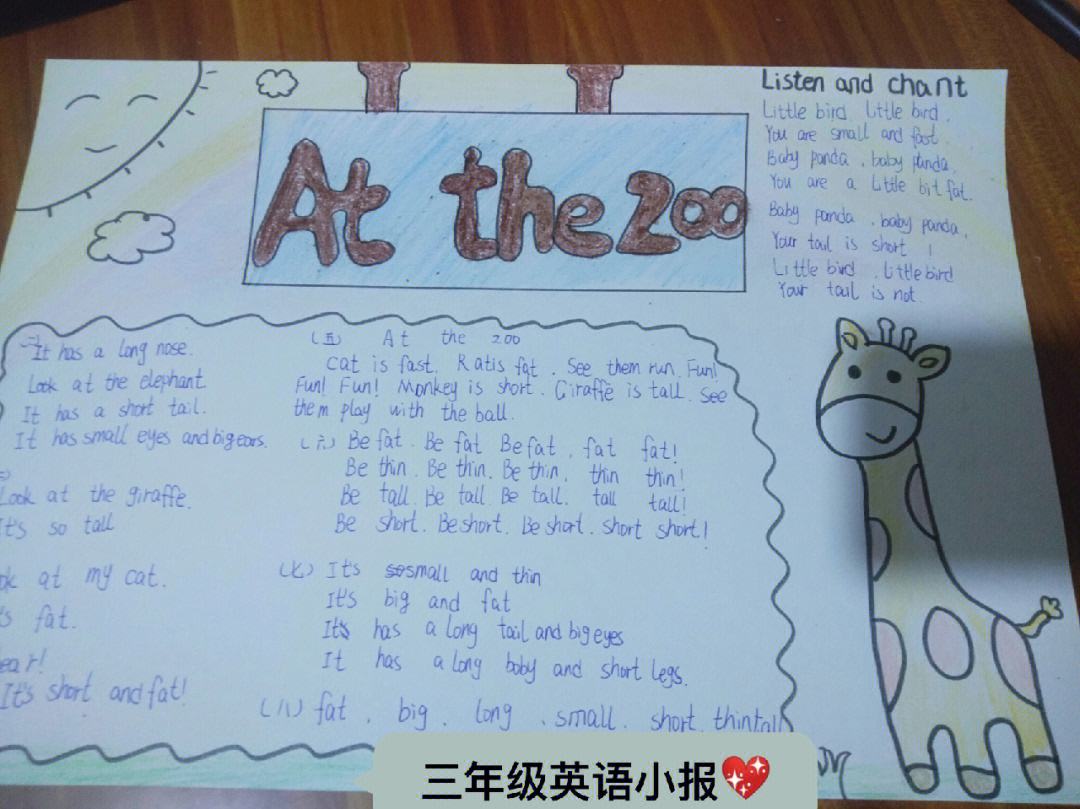 At the zoo
Listen and chant
Little bird, Little bird,
You are small and fast.
Baby panda, baby panda,
You are a little bit fat.
Baby panda, baby panda,
Your tail is short!
Little bird, Little bird
Your tail is not.
It has a long nose.
Look at the elephant.
It has a short tail.
It has small eyes and big ears.
Look at the giraffe.
It's so tall
at my cat.
fat.
It's short and fat!
(五) At the zoo
Cat is fast. Rat is fat. See them run. Fun!
Fun! Fun! Monkey is short. Giraffe is tall. See
them play with the ball.
(六) Be fat. Be fat Be fat, fat fat!
Be thin. Be thin. Be thin, thin thin!
Be tall. Be tall. Be tall. tall tall!
Be short. Be short. Be short. short short!
(七) It's small and thin
It's big and fat
It's has a long tail and big eyes
It has a long boby and short legs.
(八) fat, big, long, small, short, thin tall
三年级英语小报